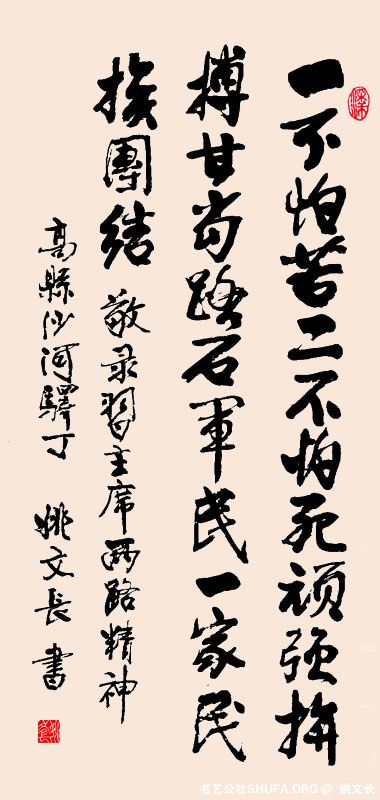 一不怕苦二不怕死顽强拚
搏甘当路石軍民一家民
族團結 敬录習主席两路精神
高縣沙河驛丁 姚文長書
书艺公社SHUFA.ORG @ 姚文长